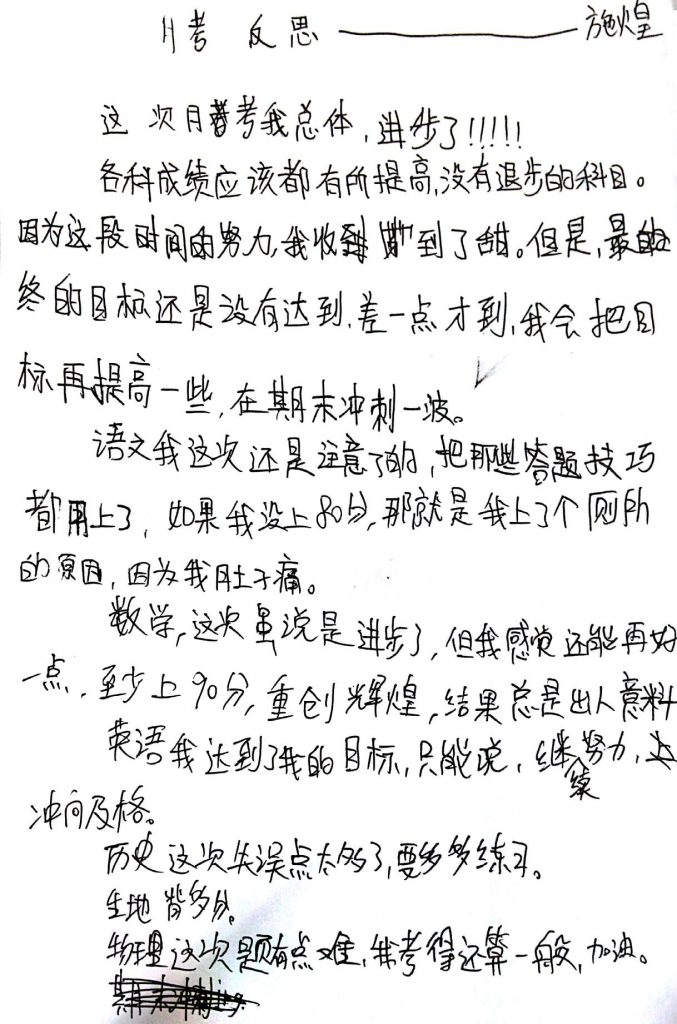 月考 反思 —— 施煌
这次月考我总体,进步了!!!!!
各科成绩应该都有所提高,没有退步的科目。
因为这段时间的努力,我收到了甜。但是,最
终的目标还是没有达到,差一点才到,我会把目
标再提高一些,在期末冲刺一波。
语文我这次还是注意了的,把那些答题技巧
都用上了,如果我没上80分,那就是我上了个厕所
的原因,因为我肚子痛。
数学,这次虽说是进步了,但我感觉还能再好
一点,至少上90分,重创辉煌,结果总是出人意料
英语我达到了我的目标,只能说,继续努力,
冲向及格。
历史这次失误点太多了,要多多练习。
生地背多分。
物理这次题有点难,我考得还算一般,加油。